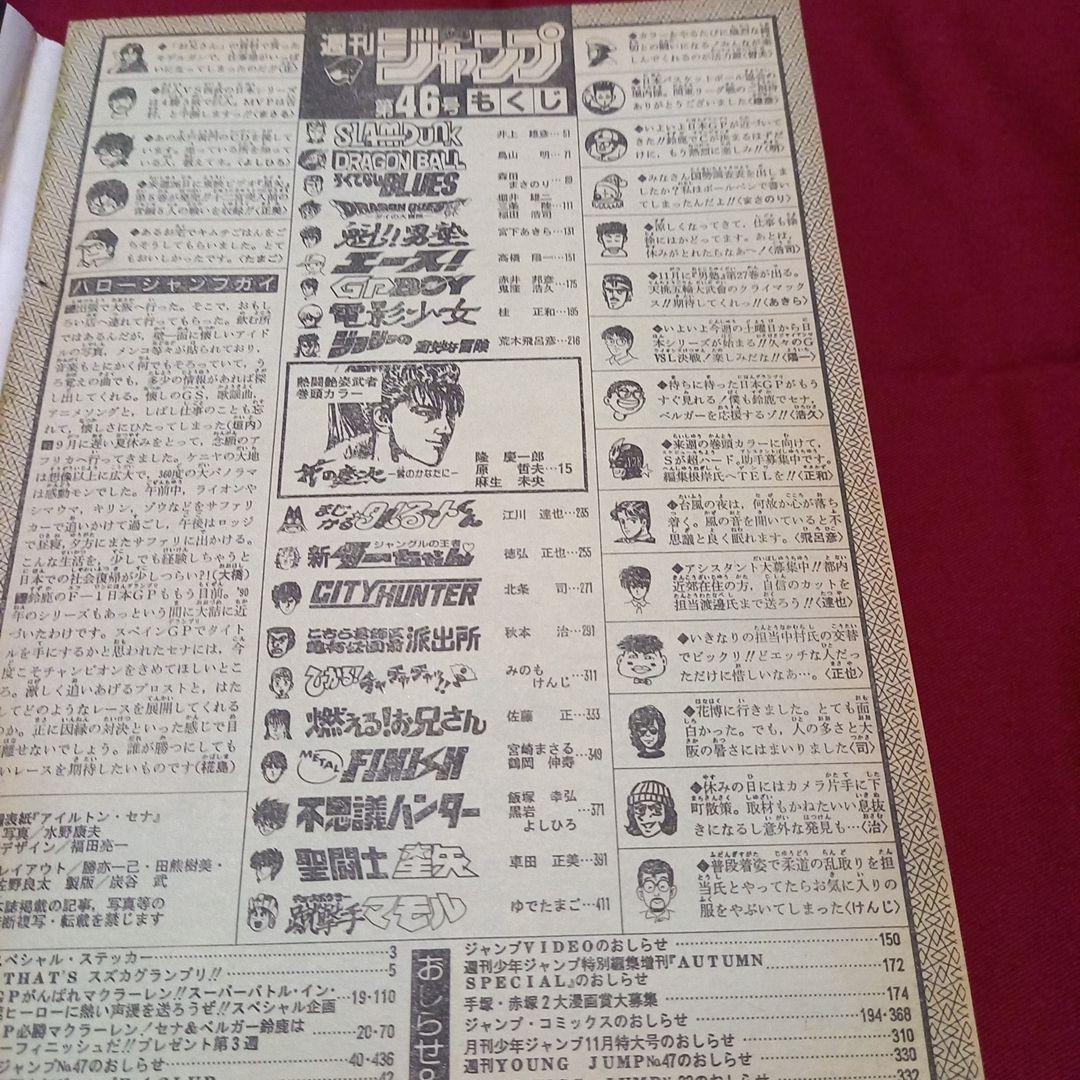 週刊
ジャンプ
第46号 もくじ
SLAM DUNK 井上 雄彦…51
DRAGON BALL 鳥山 明…71
ろくでなしBLUES 森田まさのり…89
DRAGON QUEST ダイの大冒険 堀井 雄二 三条 陸 稲田 浩司…111
魁!!男塾 宮下あきら…131
エース! 高橋 陽一…151
GP BOY 赤井 邦彦 鬼窪 浩久…175
電影少女 桂 正和…195
ジョジョの奇妙な冒険 荒木飛呂彦…216
熱闘艶姿武者
巻頭カラー
花の慶次―雲のかなたに―
隆 慶一郎
原 哲夫…15
麻生 未央
まじかる☆タルるートくん 江川 達也…235
ジャングルの王者
新ターちゃん♡ 徳弘 正也…255
CITY HUNTER 北条 司…271
こちら葛飾区亀有公園前派出所 秋本 治…291
ひかる!チャチャチャッ!! みのもけんじ…311
燃える!お兄さん 佐藤 正…333
METAL FINISH 宮崎まさる 鶴岡 伸寿…349
不思議ハンター 飯塚 幸弘 黒岩よしひろ…371
聖闘士星矢 車田 正美…391
蹴撃手マモル ゆでたまご…411
◆あるお宅でキムチごはんをご
ちそうしてもらいました。とて
もおいしかったです。〈たまご〉
ハロージャンプガイ
出張で大阪へ行った。そこで、おもし
ろい店へ連れて行ってもらった。飲む所
ではあるんだが、壁一面に懐しいアイド
ルの写真、メンコ等々が貼られており、
音楽もとにかく何でもそろっていて、う
ろ覚えの曲でも、多少の情報があれば探
し出してくれる。懐しのGS、歌謡曲、
アニメソングと、しばし仕事のことも忘
れて、懐しさにひたってしまった(垣内)
9月に遅い夏休みをとって、念願のア
フリカへ行ってきました。ケニヤの大地
は想像以上に広大で、360度の大パノラマ
は感動モンでした。午前中、ライオンや
シマウマ、キリン、ゾウなどをサファリ
カーで追いかけて過ごし、午後はロッジ
で昼寝、夕方にまたサファリに出かける。
こんな生活を、少しでも経験しちゃうと
日本での社会復帰が少しつらい?!(大橋)
鈴鹿のF―1日本GPももう目前。'90
年のシリーズもあっという間に大詰に近
づいたわけです。スペインGPでタイト
ルを手にするかと思われたセナには、今
度こそチャンピオンをきめてほしいとこ
ろ。激しく追いあげるプロストと、はた
してどのようなレースを展開してくれる
のか。正に因縁の対決といった感じで目
離せないでしょう。誰が勝つにしても
いいレースを期待したいものです(椛島)
表紙『アイルトン・セナ』
写真/水野康夫
デザイン/福田亮一
レイアウト/勝亦一己・田熊樹美・
佐野良太 製版/炭谷 武
本誌掲載の記事、写真等の
無断複写・転載を禁じます
◆いよいよ日本GPが近づいて
きた!!鈴鹿で
けに、もう熱烈に楽しみ!!〈明〉
◆みなさん国勢調査表を出しま
したか?私はボールペンで書い
てしまったんだよ!!〈まさのり〉
◆涼しくなってきて、仕事も徐
徐にはかどってます。あとは、
休みがとれたらなあ〜!〈浩司〉
◆11月に『男塾』第27巻が出る。
天挑五輪大武會のクライマック
ス!!期待してくれっ!!〈あきら〉
◆いよいよ今週の土曜日から日
本シリーズが始まる!!久々のG
VSL決戦!楽しみだな!!〈陽一〉
◆待ちに待った日本GPがもう
すぐ見れる!僕も鈴鹿でセナ、
ベルガーを応援するゾ!!〈浩久〉
◆来週の巻頭カラーに向けて、
Sが超ハード。助手募集中です。
編集根岸氏へTELを!!〈正和〉
◆台風の夜は、何故か心が落ち
着く。風の音を聞いていると不
思議と良く眠れます。〈飛呂彦〉
◆アシスタント大募集中!!都内
近郊在住の方、自信のカットを
担当渡邊氏まで送ろう!!〈達也〉
◆いきなりの担当中村氏の交替
でビックリ!!どエッチな人だっ
ただけに惜しいなあ…。〈正也〉
◆花博に行きました。とても面
白かった。でも、人の多さと大
阪の暑さにはまいりました〈司〉
◆休みの日にはカメラ片手に下
町散策。取材もかねたいい息抜
きになるし意外な発見も…〈治〉
◆普段着姿で柔道の乱取りを担
当氏とやってたらお気に入りの
服をやぶいてしまった〈けんじ〉
スペシャル・ステッカー…3
THAT'S スズカグランプリ!!…5
GPがんばれマクラーレン!!スーパーバトル・イン・…19・110
ヒーローに熱い声援を送ろうぜ!!スペシャル企画
GP必勝マクラーレン!セナ&ベルガー鈴鹿は…20・70
ーフィニッシュだ!!プレゼント第3週
ジャンプNo.47のおしらせ…40・436
おしらせ
ジャンプVIDEOのおしらせ…150
週刊少年ジャンプ特別編集増刊『AUTUMN
SPECIAL』のおしらせ…172
手塚・赤塚2大漫画賞大募集…174
ジャンプ・コミックスのおしらせ…194・368
月刊少年ジャンプ11月特大号のおしらせ…310
週刊YOUNG JUMPNo.47のおしらせ…330
332